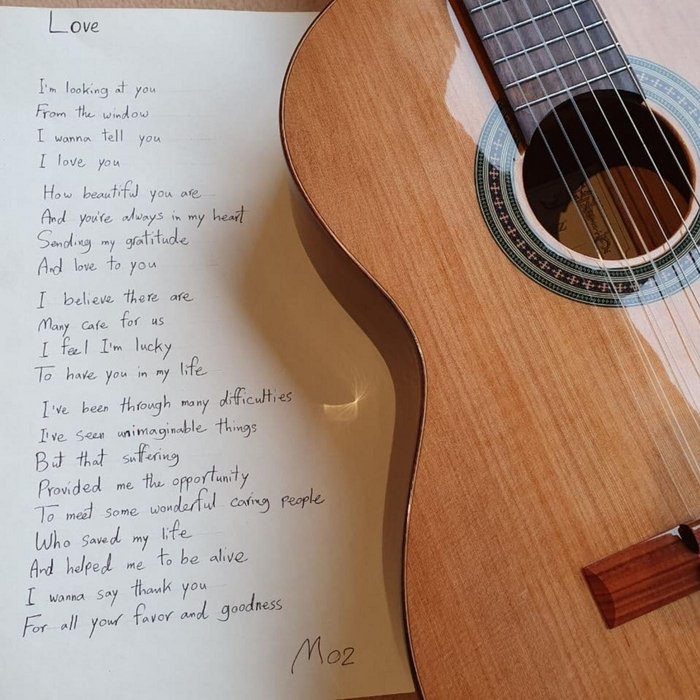 Love
I'm looking at you
From the window
I wanna tell you
I love you
How beautiful you are
And you're always in my heart
Sending my gratitude
And love to you
I believe there are
Many care for us
I feel I'm lucky
To have you in my life
I've been through many difficulties
I've seen unimaginable things
But that suffering
Provided me the opportunity
To meet some wonderful caring people
Who saved my life
And helped me to be alive
I wanna say thank you
For all your favor and goodness
Moz